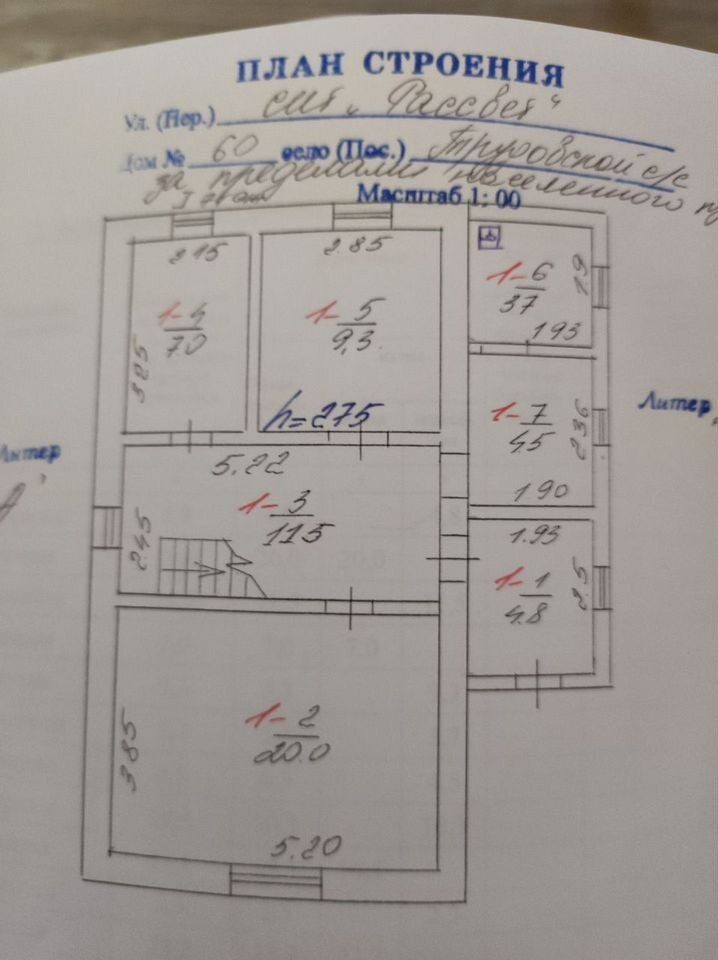 ПЛАН СТРОЕНИЯ
Ул. (Пер.) снт „Рассвет"
Дом № 60 село (Пос.) Трудовской с/с
за пределами населенного
I этаж Масштаб 1: 00
2.15 2.85
1-4 1-5 1-6 1.9
7.0 9,3 3.7
3.25 1.93
h=275 1-7 2.36 Литер
4.5
Литер 5.22 1.90
А 1-3 1.93
2.45 11.5 1-1 2.5
4.8
1-2
3.85 20.0
5.20